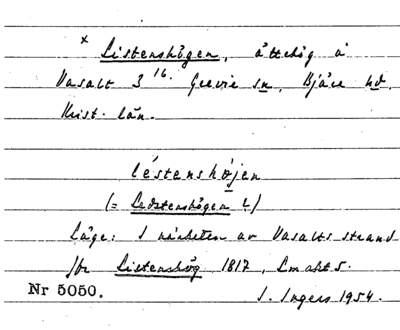 x Listenshögen, ättehög å
Vasalt 3 16. Grevie sn. Bjäre hd.
Krist. län.
léstenshøjen
(= Ledstenshögen?)
Läge: I närheten av Vasalts strand
Jfr Listenshög 1817, Lm akt 5.
Nr 5050. I. Ingers 1954.